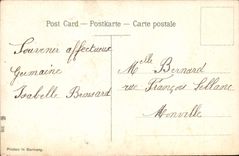 Post Card — Postkarte — Carte postale
Souvenir affectueux
Germaine
Isabelle Brossard
Melle Bernard
rue François
Monville
Printed in Germany.